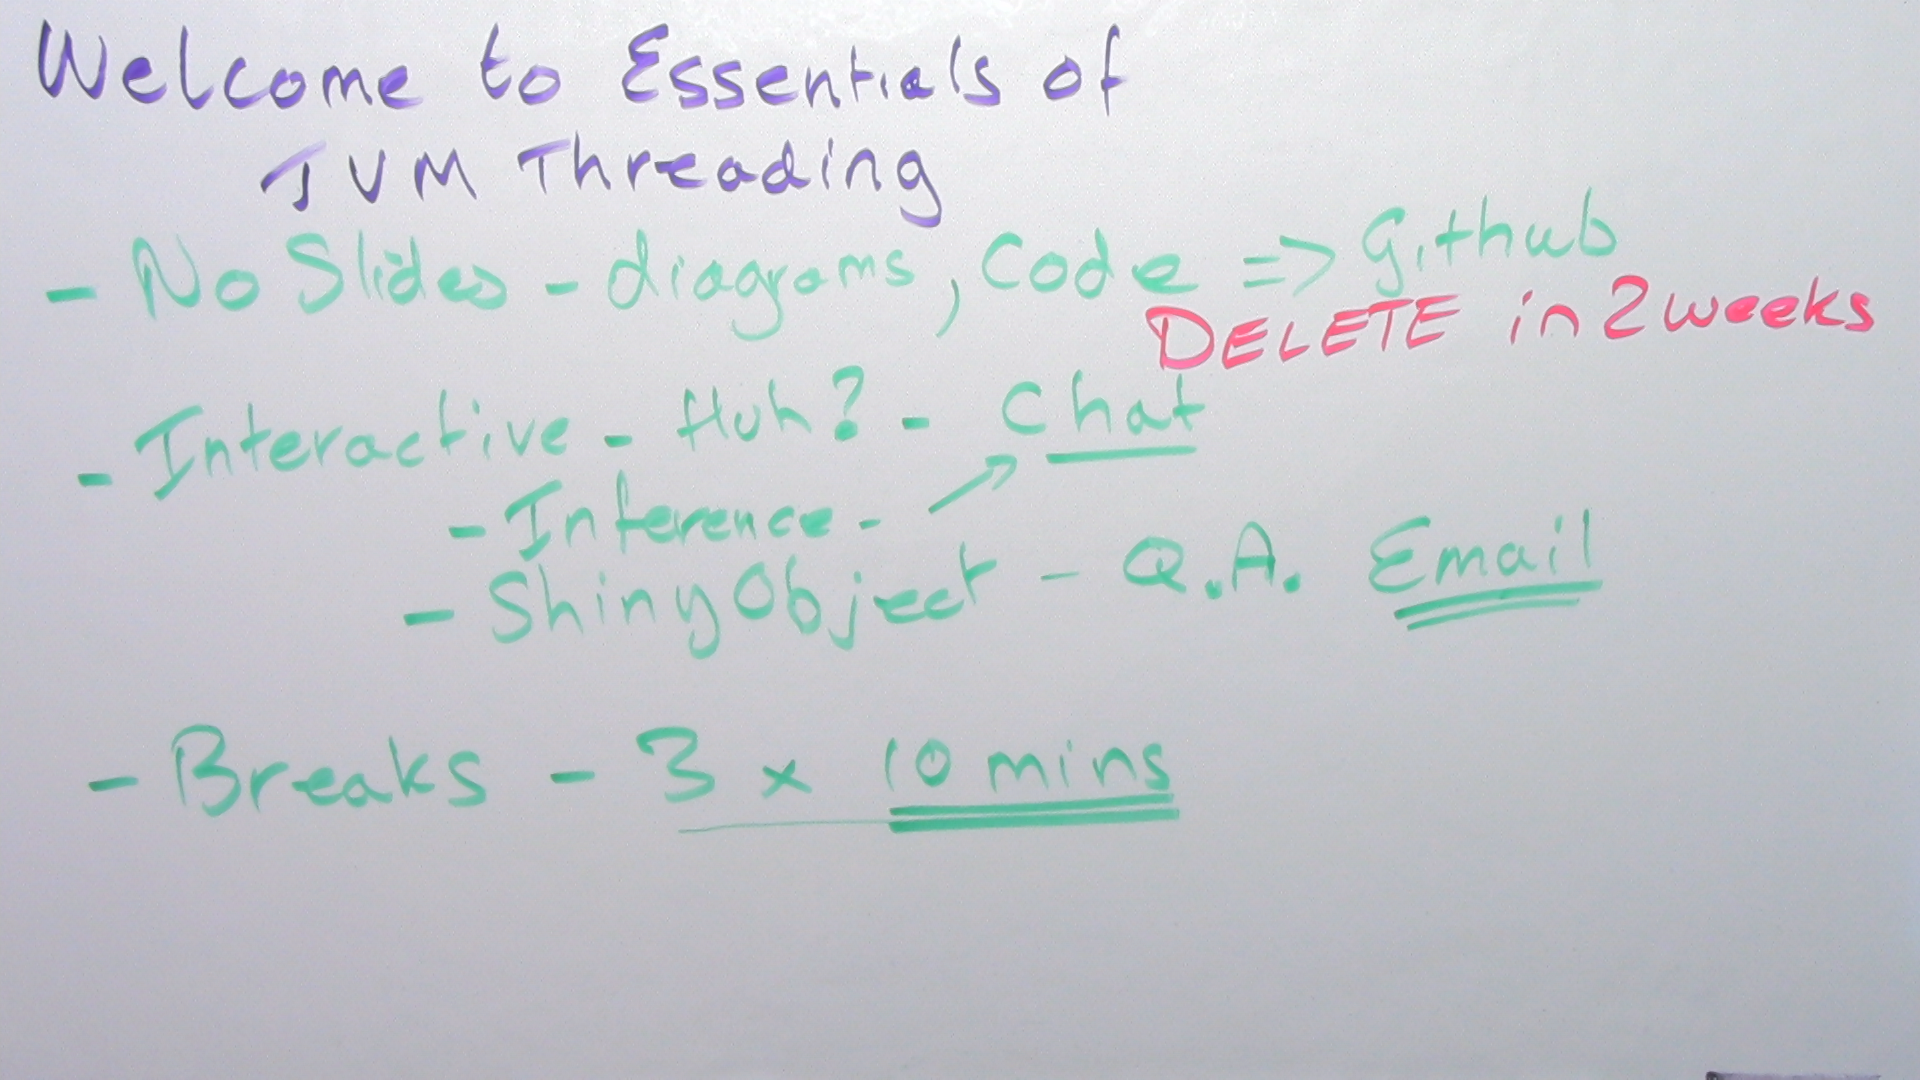 Welcome to Essentials of
JVM Threading
- No Slides - diagrams, Code => Github
DELETE in 2 weeks
- Interactive - Huh? - Chat
- Inference -
- Shiny Object - Q.A. Email
- Breaks - 3 x 10 mins